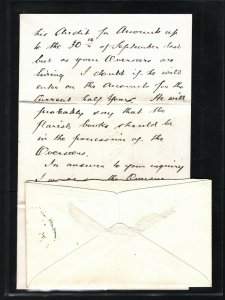 his Audit for Accounts up
to the 30th of September last
but as your Overseers are
living I doubt if he will
enter on the Accounts for the
Current half Year. He will
probably say that the
Parish books should be
in the possession of the
Overseers
In answer to your inquiry
the Overseers